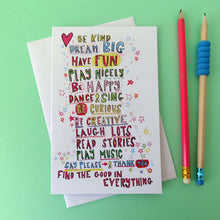 BE KIND
DREAM BIG
HAVE FUN
PLAY NICELY
BE HAPPY
DANCE & SING
BE CURIOUS
BE CREATIVE
LAUGH LOTS
READ STORIES
PLAY MUSIC
SAY PLEASE & THANK YOU
FIND THE GOOD IN
EVERYTHING